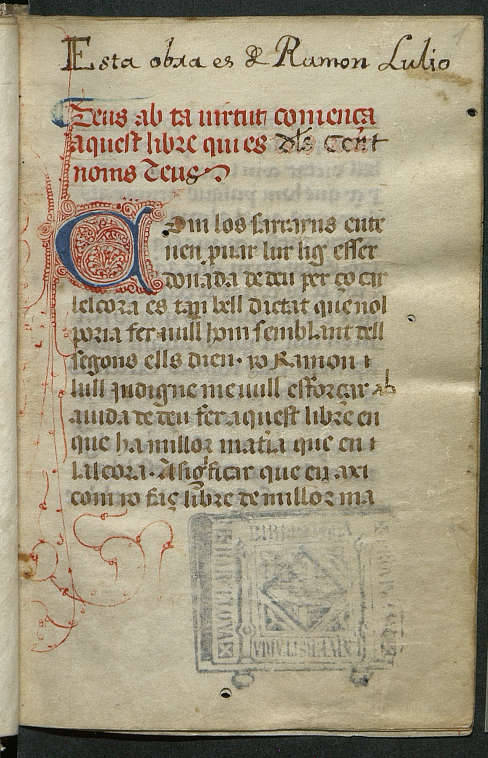 Esta obra es de Ramon Lulio
1
Deus ab ta uirtut comença
aquest libre qui es dls Cent
noms Deus
Com los sarrayns ente
nen puar lur lig esser
donada de deu per ço car
lelcora es tan bell dictat que nol
poria fer null hom semblant dell
segons ells dien. io Ramon l
lull indigne me uull esforçar ab
aiuda de deu fer aquest libre en
que ha millor matia que en l
lalcora. A sigficar que en axi
com io faç libre de millor ma
BIBLIOTECA
UNIVERSITARIA
BARCELONA